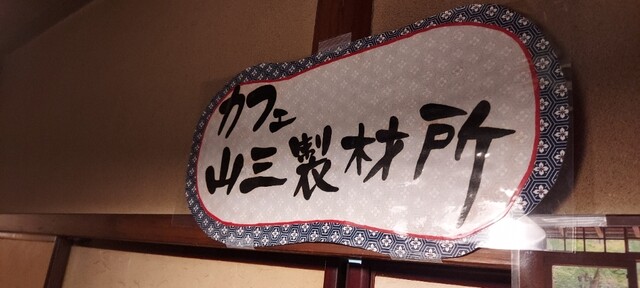 カフェ
山三製材所